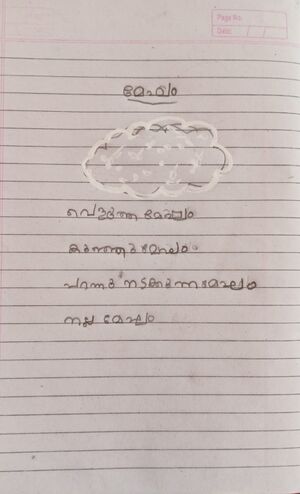 Page No.
Date: / /
മേഘം
വെളുത്ത മേഘം
കുഞ്ഞു മേഘം
പറന്നു നടക്കുന്ന മേഘം
നല്ല മേഘം